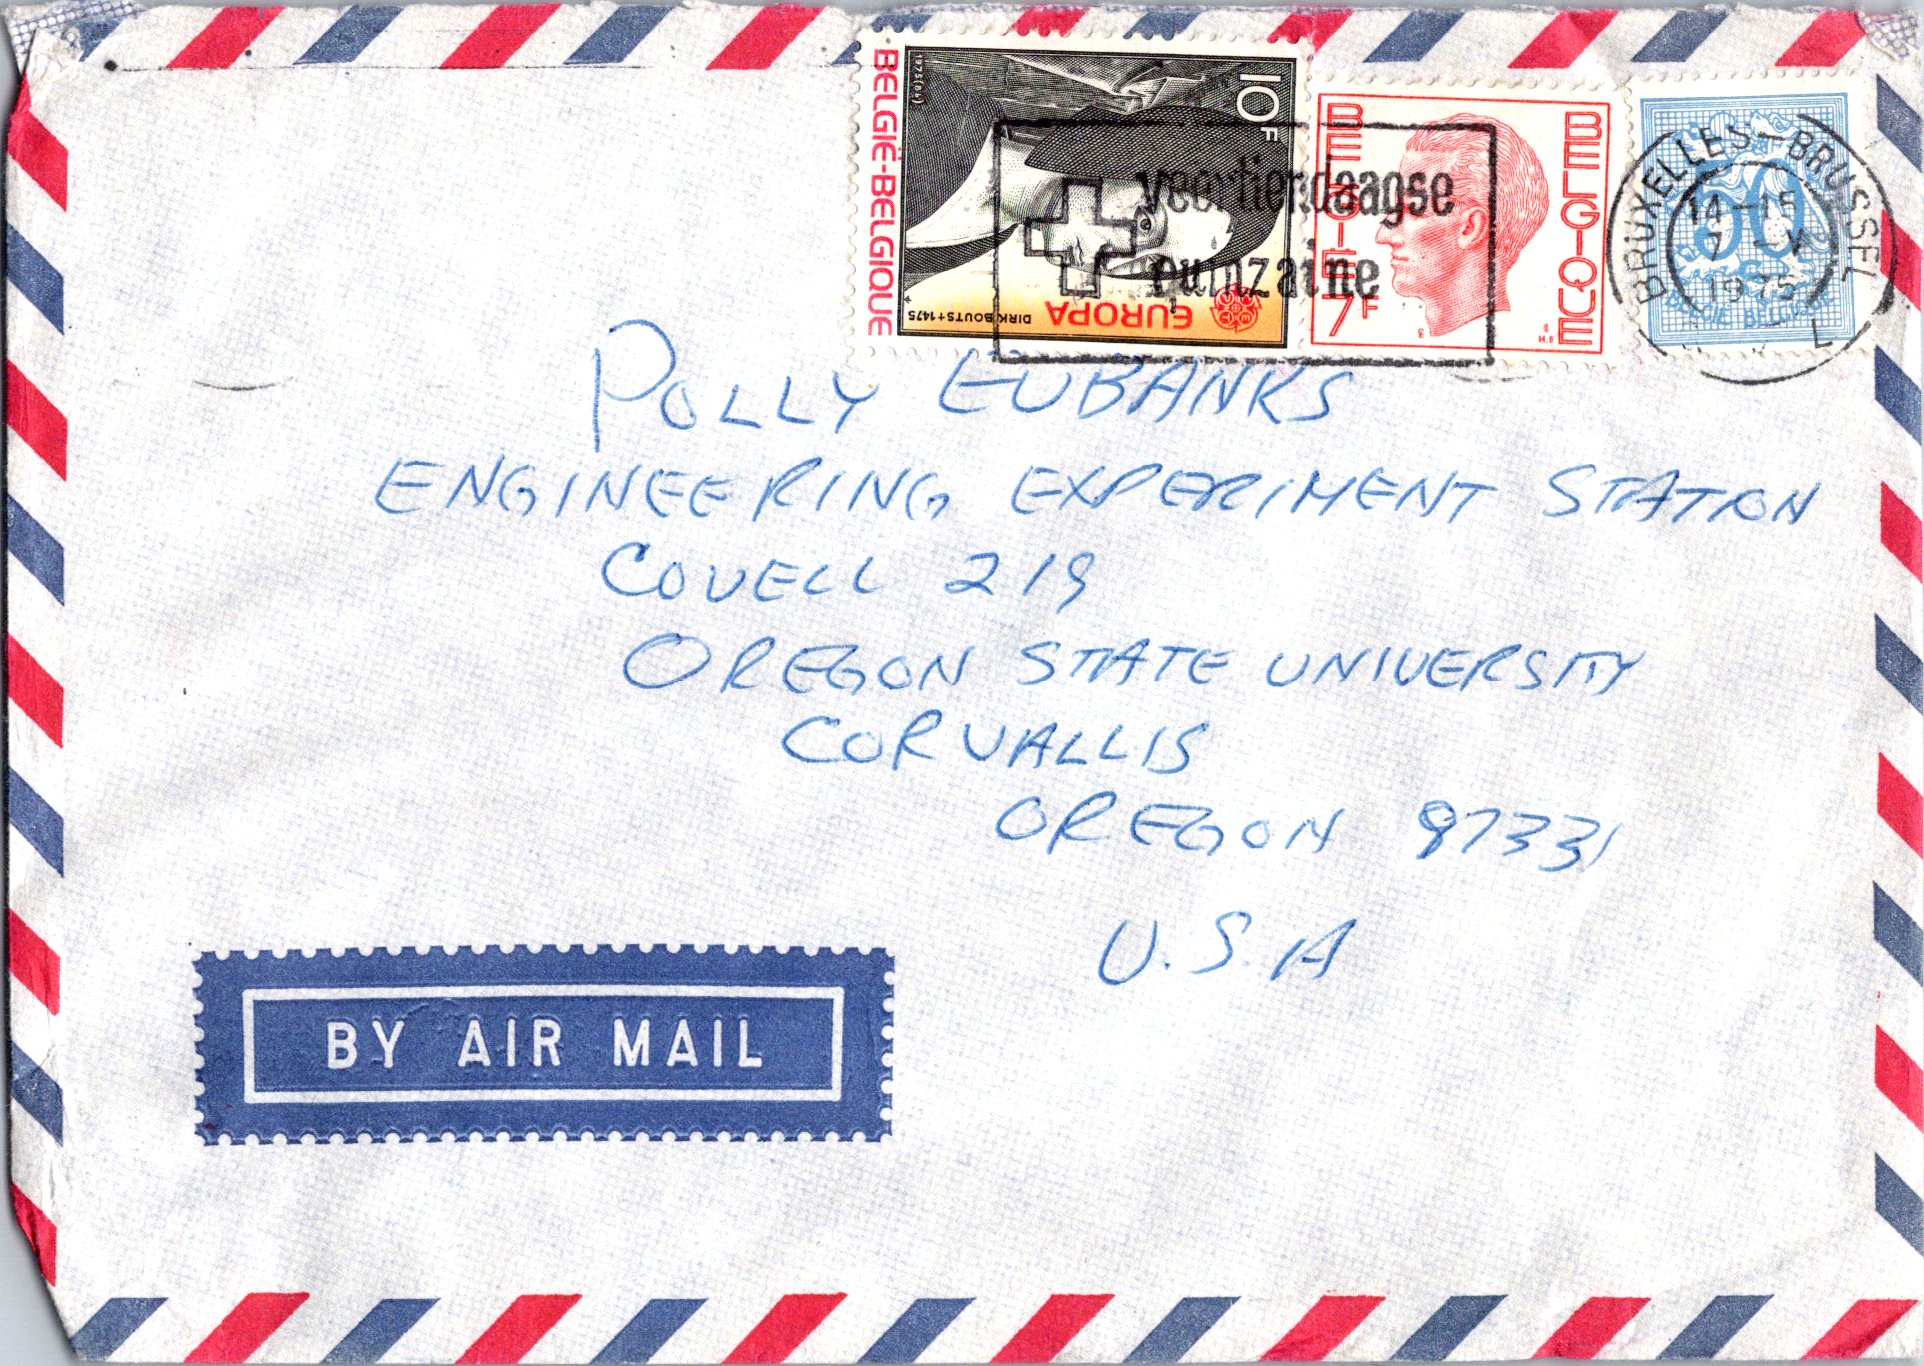 BELGIË-BELGIQUE
1975(84)
10F
EUROPA
DIRK BOUTS+1475
BELGIË
7F
BELGIQUE
50
BELGIE BELGIQUE
veertiendaagse
quinzaine
BRUXELLES-BRUSSEL
14-15
7-V
1975
POLLY EUBANKS
ENGINEERING EXPERIMENT STATION
COVELL 219
OREGON STATE UNIVERSITY
CORVALLIS
OREGON 97331
U.S.A
BY AIR MAIL